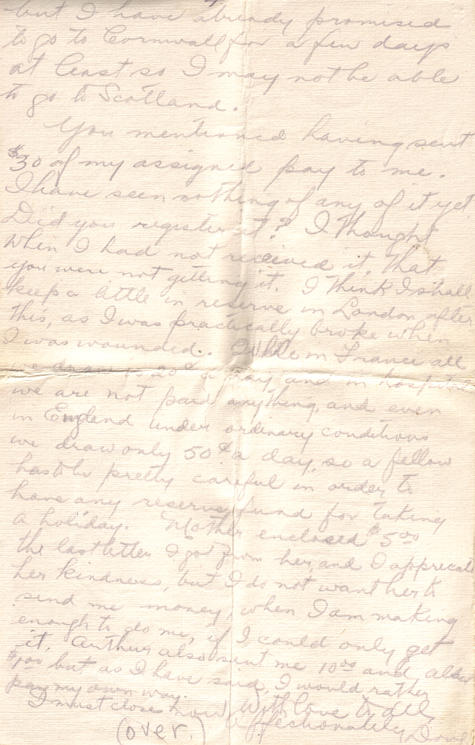 but I have already promised
to go to Cornwall for a few days
at least so I may not be able
to go to Scotland.
You mentioned having sent
$30 of my assigned pay to me.
I have seen nothing of any of it yet
Did you register it? I thought
when I had not received it, that
you were not getting it. I think I shall
keep a little in reserve in London after
this, as I was practically broke when
I was wounded. While in France all
we draw is 20¢ a day, and in hospital
we are not paid anything, and even
in England under ordinary conditions
we draw only 50¢ a day, so a fellow
has to be pretty careful in order to
have any reserve fund for taking
a holiday. Mother enclosed $5.00
the last letter I got from her, and I appreciate
her kindness, but I do not want her to
send me money, when I am making
enough to do me, if I could only get
it. Arthur also sent me 10.00 and
but as I have said, I would rather
pay my own way.
I must close now, With love to all,
Affectionately
(over.)